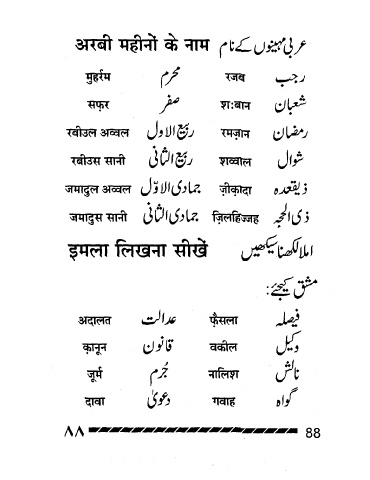 अरबी महीनों के नाम عربی مہینوں کے نام
मुहर्रम محرم रजब رجب
सफर صفر श:बान شعبان
रबीउल अव्वल ربیع الاول रमज़ान رمضان
रबीउस सानी ربیع الثانی शव्वाल شوال
जमादुल अव्वल جمادی الاوّل ज़ीक़ादा ذیقعدہ
जमादुस सानी جمادی الثانی ज़िलहिज्जह ذی الحجہ
इमला लिखना सीखें املا لکھنا سیکھیں
مشق کیجئے:
अदालत عدالت फ़ैसला فیصلہ
क़ानून قانون वकील وکیل
जूर्म جُرم नालिश نالش
दावा دعویٰ गवाह گواہ
۸۸ 88